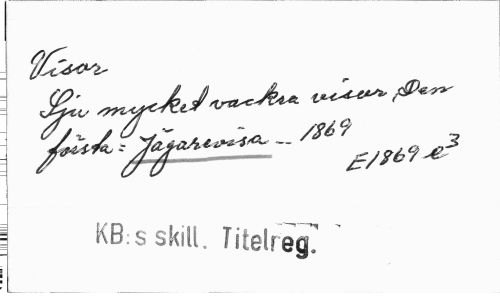 Visor
Sju mycket vackra visor, Den
första = Jägarevisa – 1869
E1869 e3
KB:s skill. Titelreg.